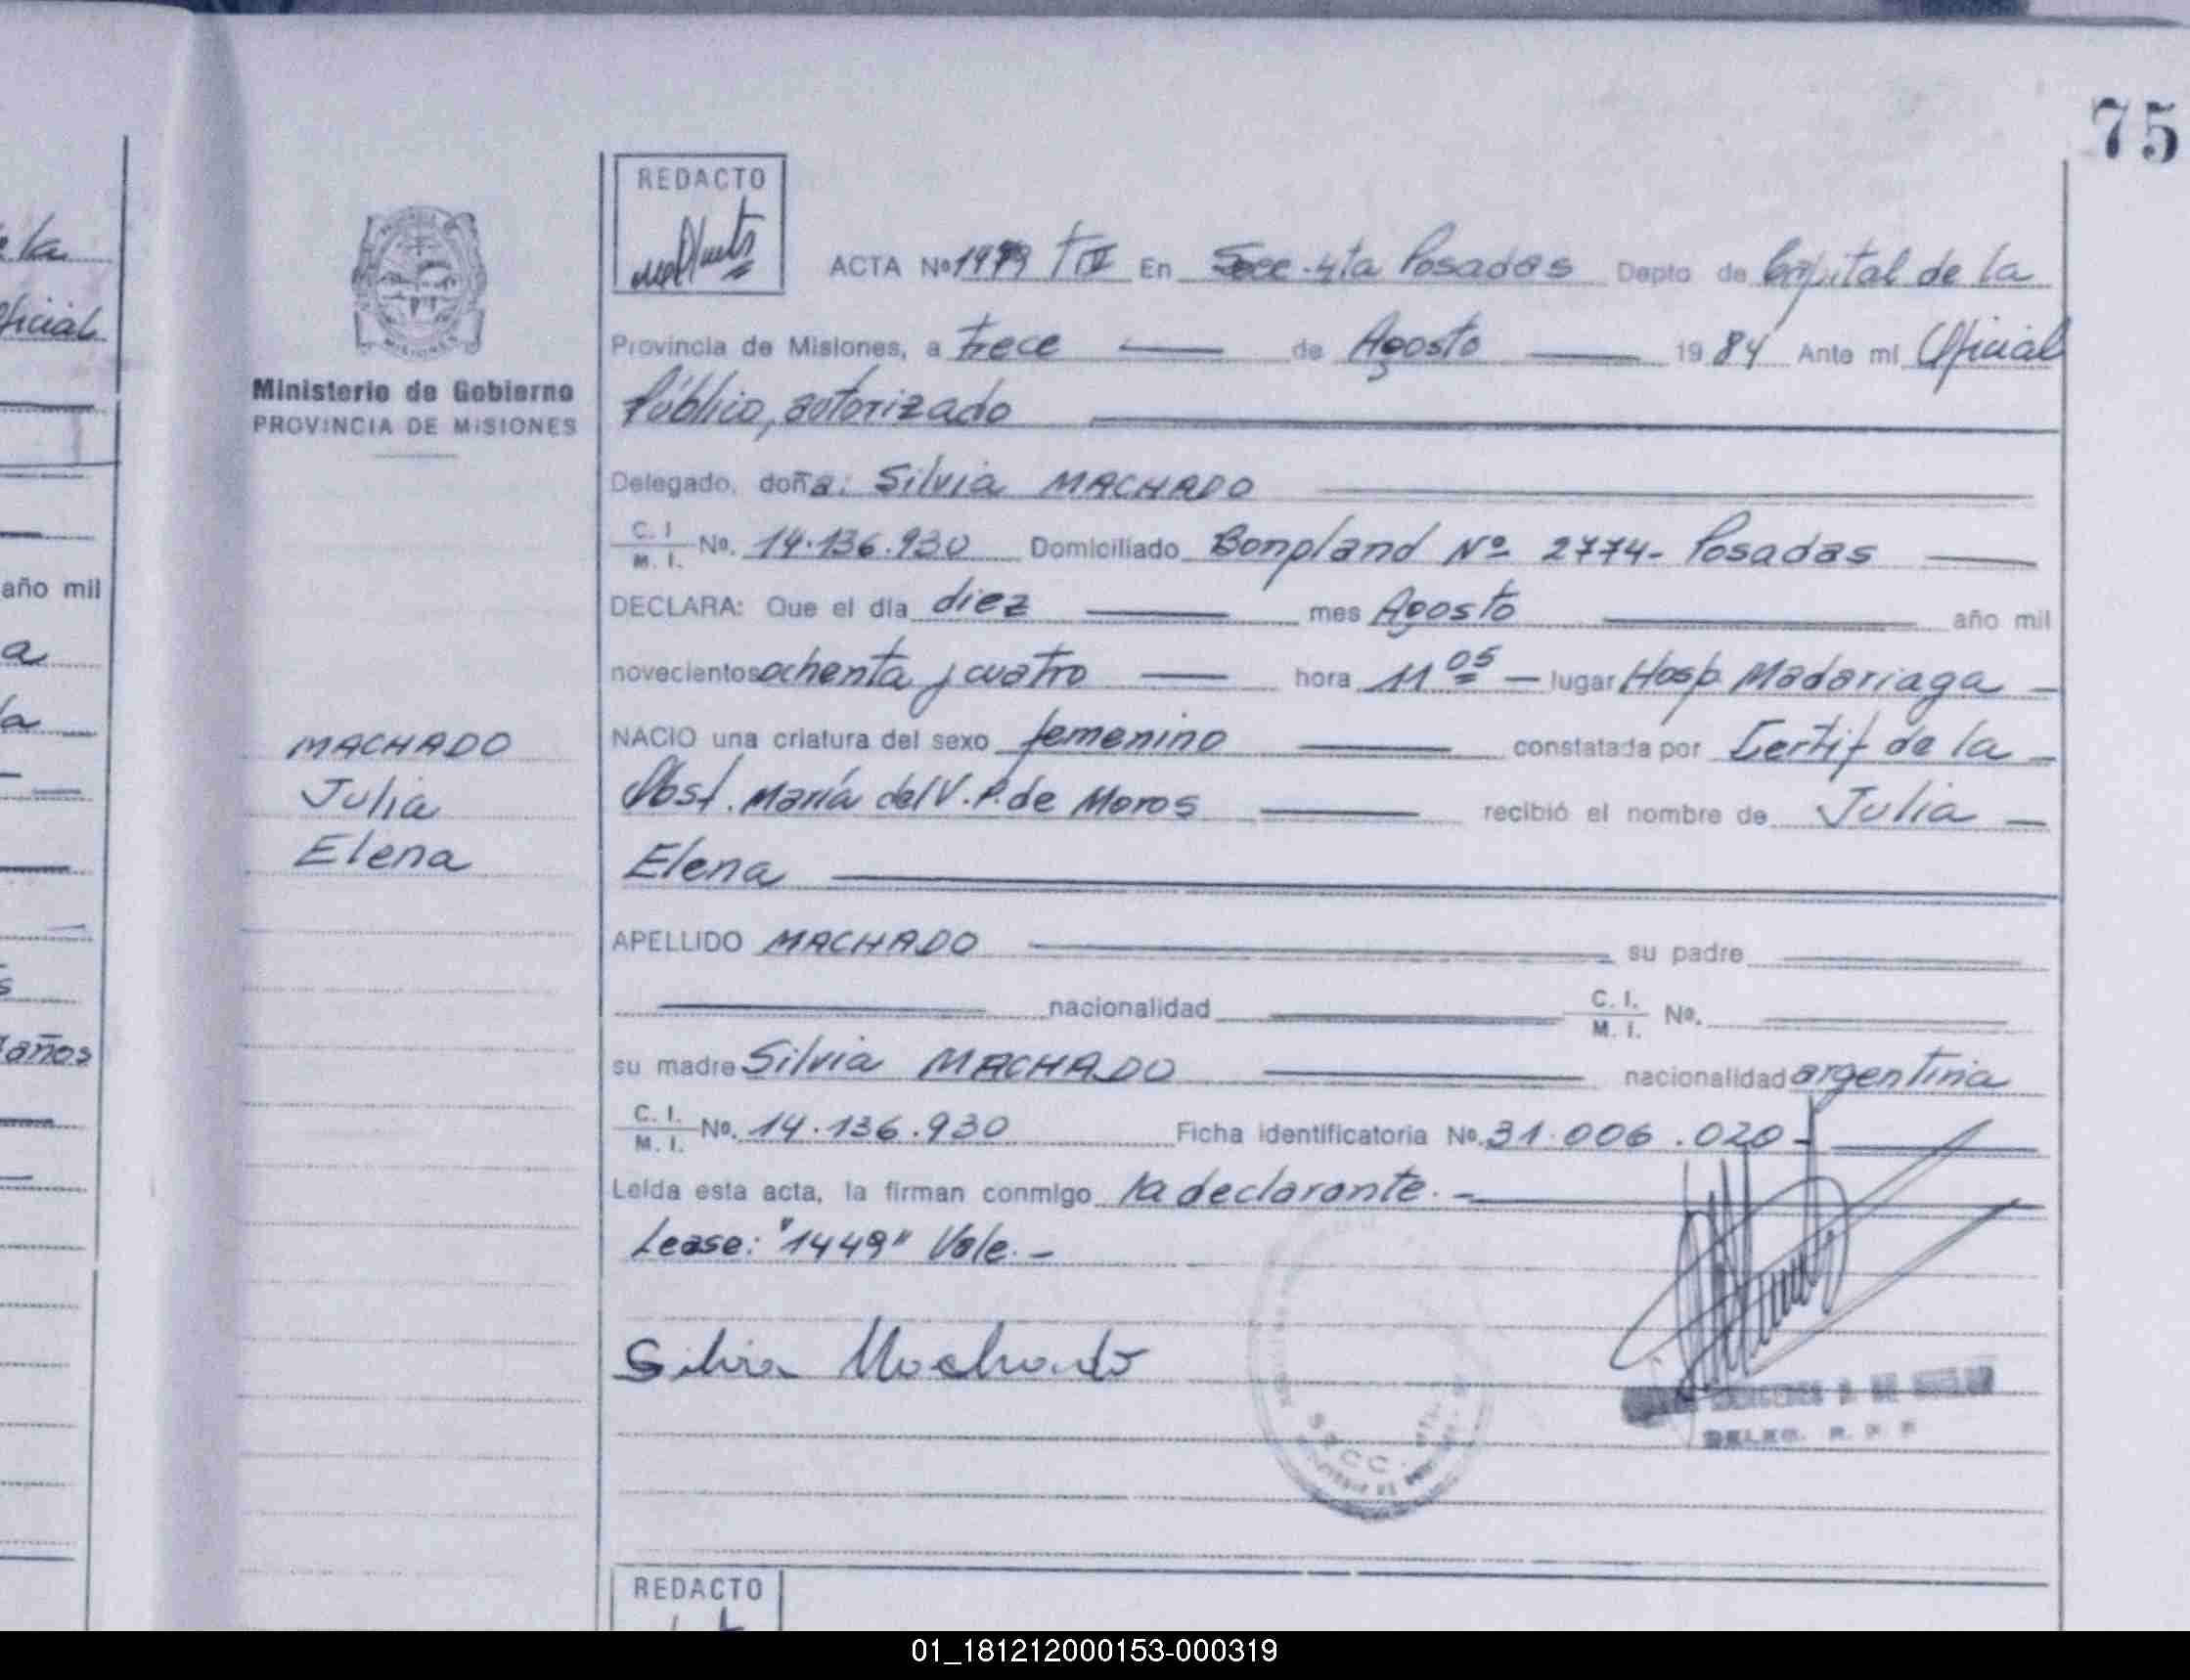 75
REDACTO
ACTA Nº 1449 TIV En Secc. 4ta Posadas Depto de Capital de la
Provincia de Misiones, a trece de Agosto 1984 Ante mi Oficial
Público, autorizado
Delegado, doña: Silvia MACHADO
C. I. M. I. No. 14.136.930 Domiciliado Bonpland Nº 2774- Posadas
DECLARA: Que el dia diez mes Agosto año mil
novecientos ochenta y cuatro hora 11 05 lugar Hosp. Madariaga
NACIO una criatura del sexo femenino constatada por Certif de la
Obst. María del V. P. de Moros recibió el nombre de Julia
Elena
APELLIDO MACHADO su padre
nacionalidad C. I. M. I. No.
su madre Silvia MACHADO nacionalidad argentina
C. I. M. I. No. 14.136.930 Ficha identificatoria No. 31.006.020-
Leida esta acta, la firman conmigo la declarante.-
Lease: "1449" Vale.-
Silvia Machado
SECC.
DELEG. R. P. P.
REDACTO
Ministerio de Gobierno
PROVINCIA DE MISIONES
MACHADO
Julia
Elena
e la
oficial
año mil
a
la
s
años
01_181212000153-000319